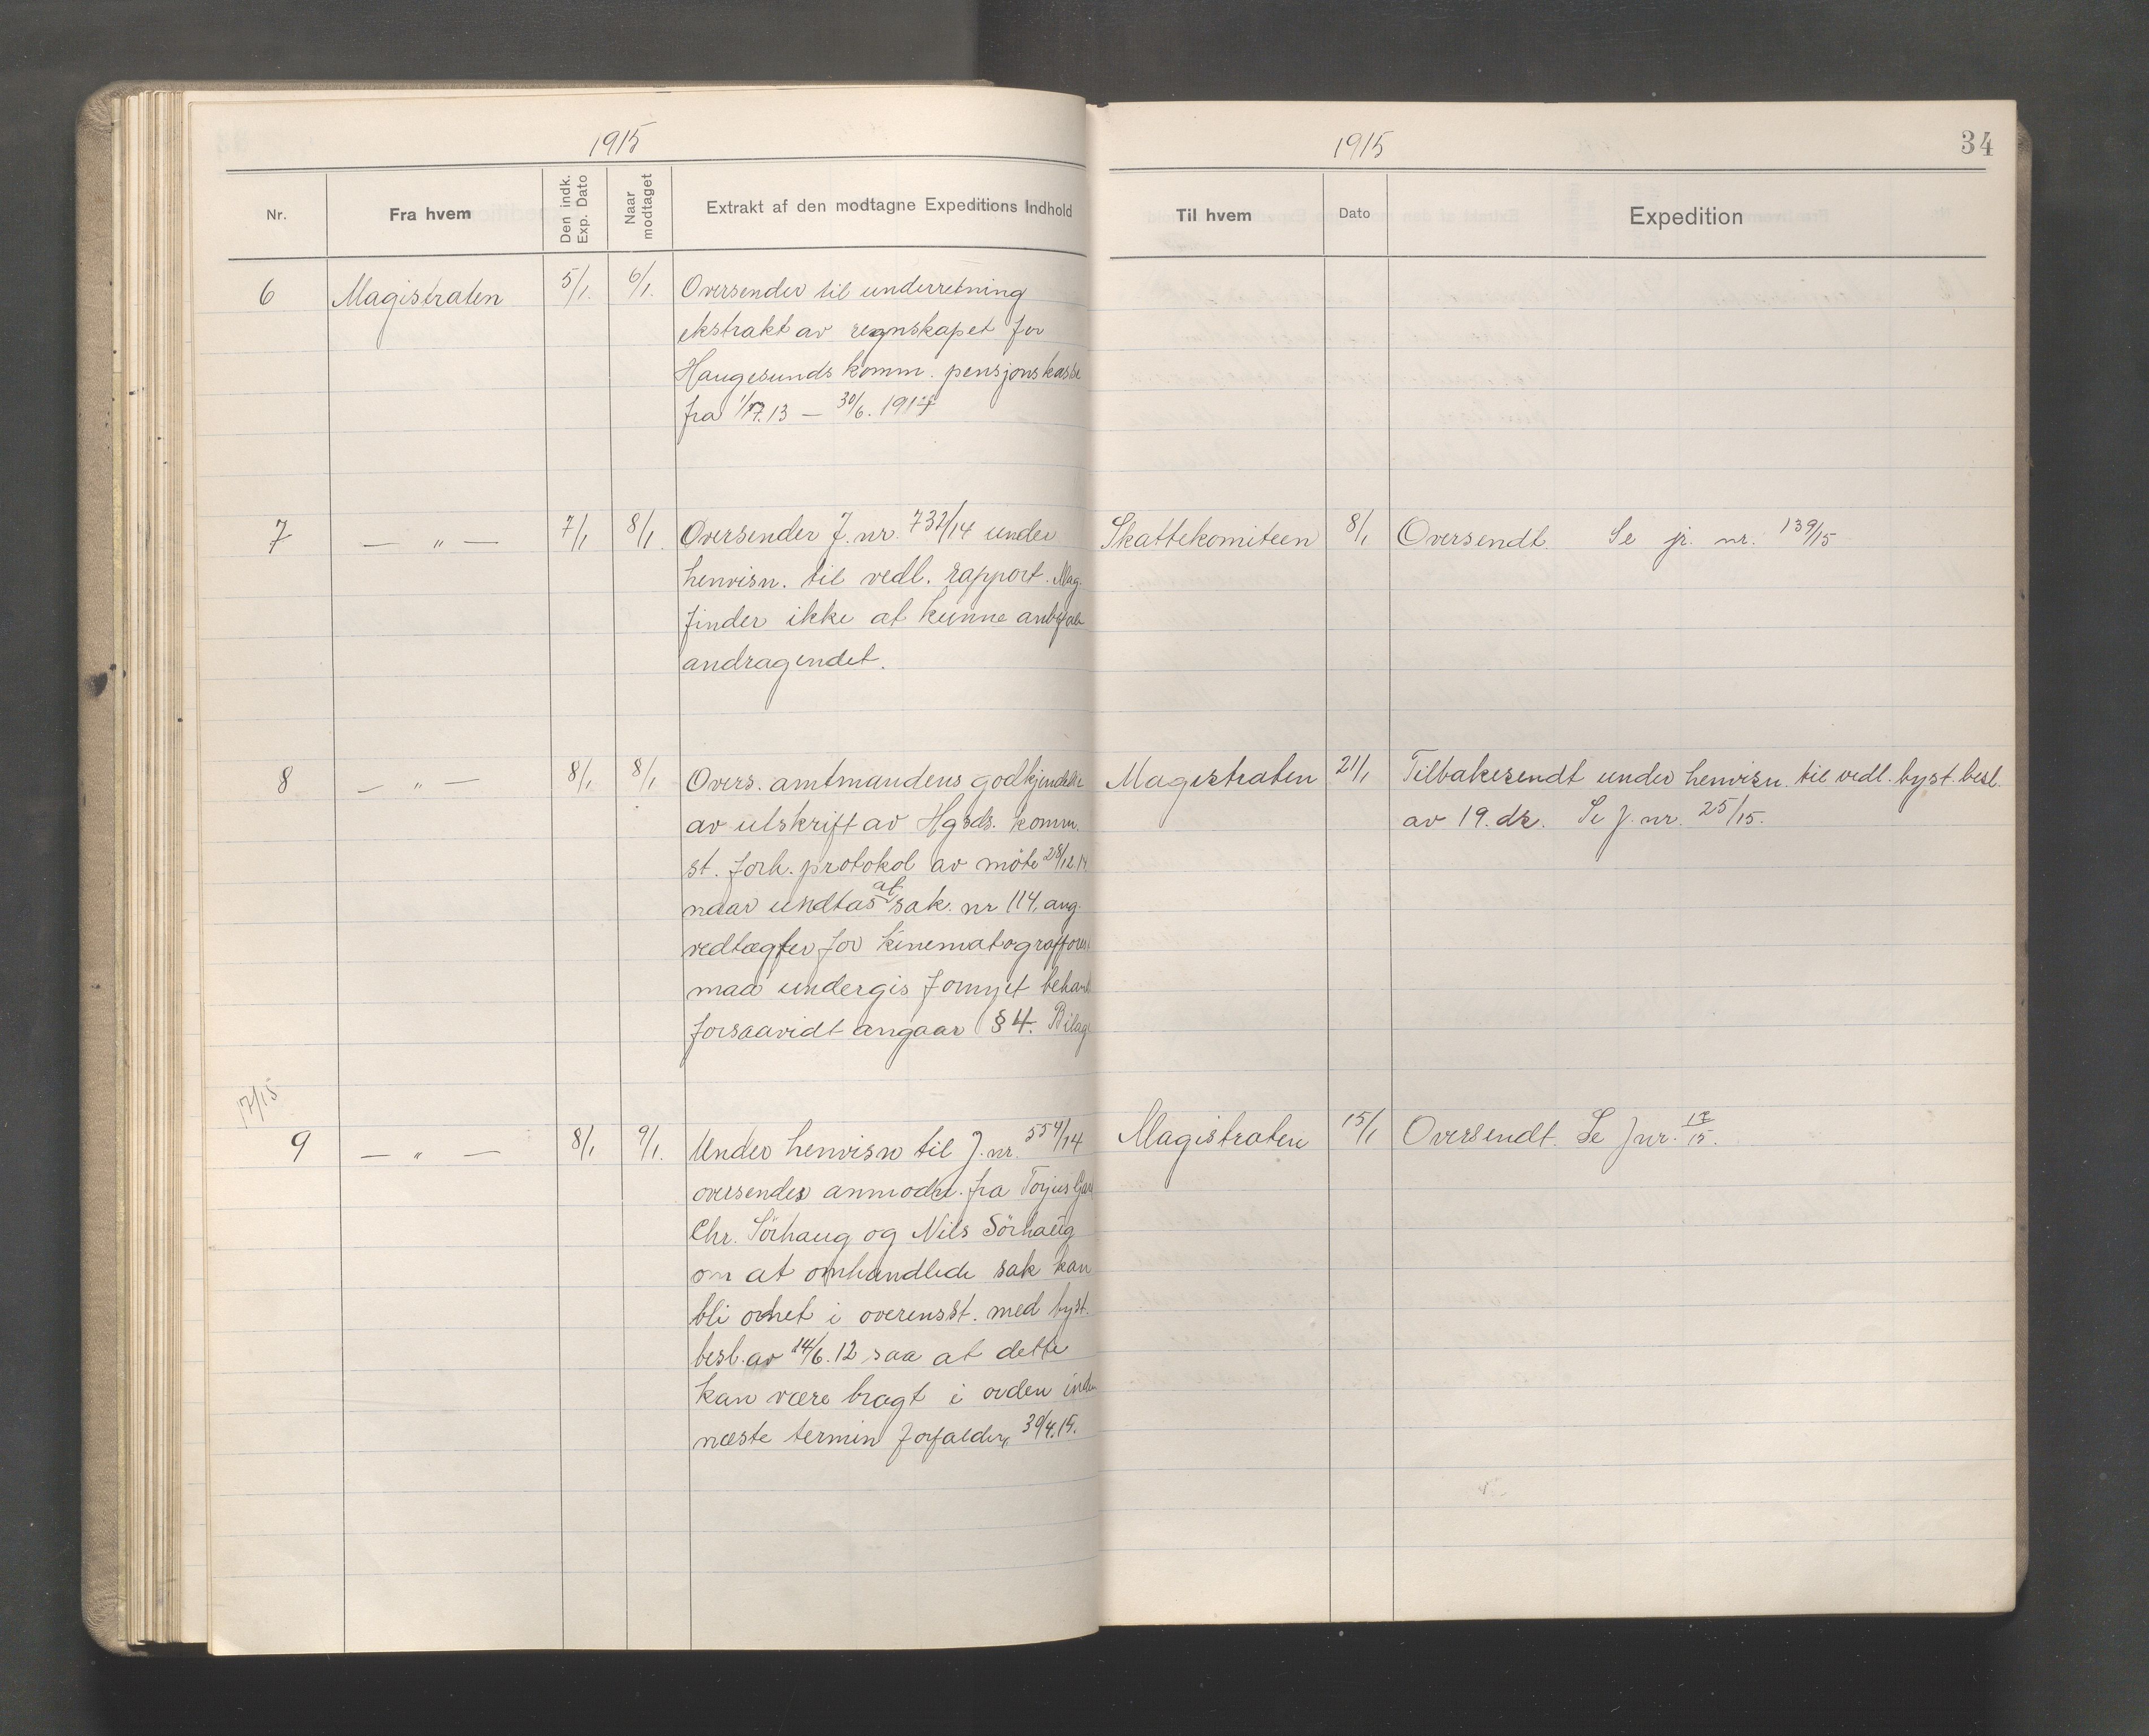 1915
Nr.
Fra hvem
Den indk.
Exp. Dato
Naar
modtaget
Extrakt af den modtagne Expeditions Indhold
6
Magistraten
5/1.
6/1.
Oversender til underretning
ekstrakt av regnskapet for
Haugesunds komm. pensjonskasse
fra 1/7.13 — 30/6. 1914
7
— " —
7/1
8/1.
Oversender J. nr. 732/14 under
henvisn. til vedl. rapport. Mag.
finder ikke at kunne anbefale
andragendet.
8
— " —
8/1
8/1
Overs. amtmandens godkjendelse
av utskrift av Hgsds. komm.
st. forh. protokol av møte 28/12.14
naar undtas at sak. nr 114, ang.
vedtægter for kinematograffores
maa undergis fornyet behand
forsaavidt angaar § 4. Bilag
17/15
9
— " —
8/1
9/1.
Under henvisn til J. nr. 554/14
oversendes anmodn. fra Torjus
Chr. Sörhaug og Nils Sörhaug
om at omhandlede sak kan
bli ordnet i overensst. med byst.
besl. av 14/6.12 saa at dette
kan være bragt i orden inden
næste termin forfalder, 30/4.15.
1915
34
Til hvem
Dato
Expedition
Skattekomiteen
8/1
Oversendt. Se jr. nr. 139/15
Magistraten
21/1
Tilbakesendt under henvisn. til vedl. byst. besl.
av 19. ds. Se J. nr. 25/15.
Magistraten
15/1
Oversendt. Se J nr. 17/15.